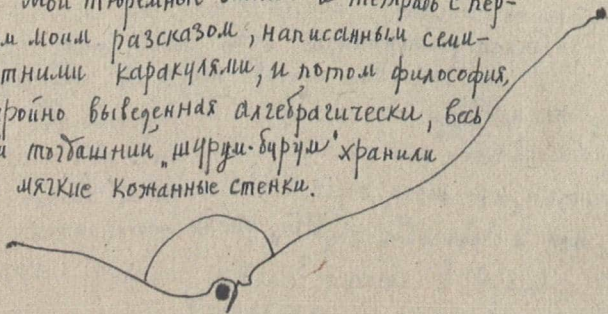 мои тюремного тетрадь с пер-
м моим разсказом, написанным семи-
тними каракулями, и потом философия,
ройно выведенная алгебрагически, весь
и тыбашний „шурум-бурум" хранили
мягкие кожанные стенки.